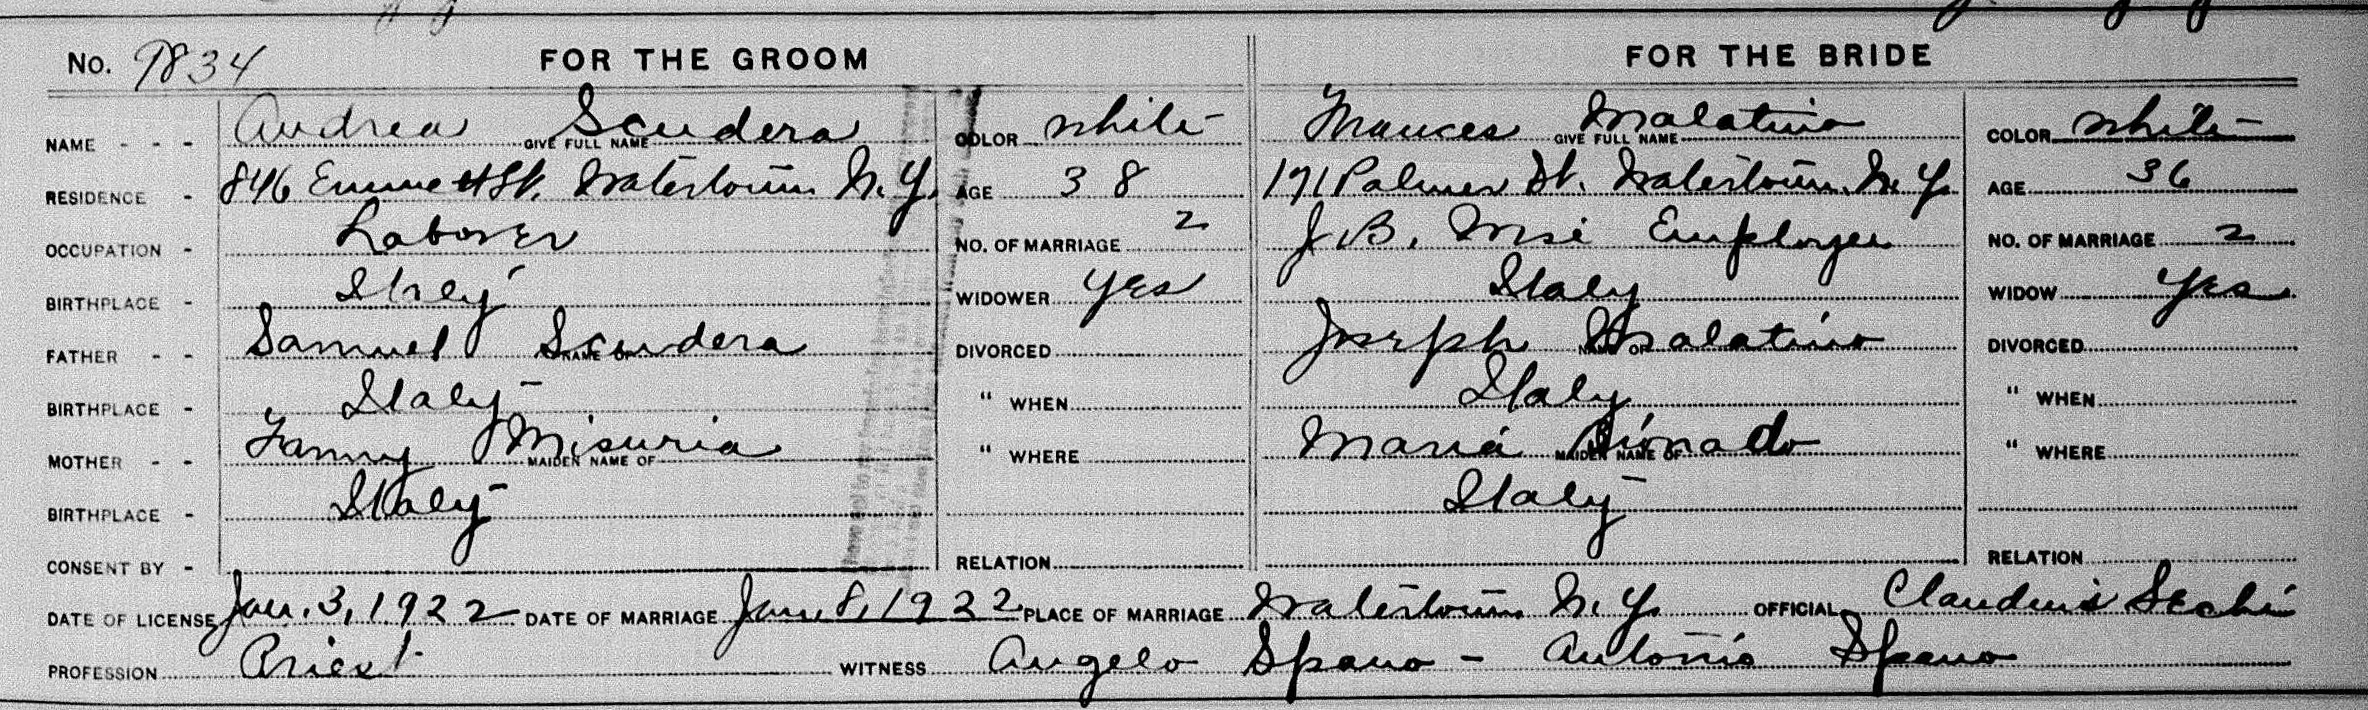 No. 9834 FOR THE GROOM FOR THE BRIDE
NAME - - - Andrea Scudera GIVE FULL NAME COLOR White Frances Malatino GIVE FULL NAME COLOR White
RESIDENCE - 846 Emmett St. Watertown N.Y. AGE 38 171 Palmer St. Watertown N.Y. AGE 36
OCCUPATION - Laborer NO. OF MARRIAGE 2 J. B. Wise Employee NO. OF MARRIAGE 2
BIRTHPLACE - Italy WIDOWER Yes Italy WIDOW Yes
FATHER - - Samuel Scudera NAME OF DIVORCED Joseph Malatino NAME OF DIVORCED
BIRTHPLACE - Italy " WHEN Italy " WHEN
MOTHER - - Fanny Misuria MAIDEN NAME OF " WHERE Maria MAIDEN NAME OF " WHERE
BIRTHPLACE - Italy Italy
CONSENT BY - RELATION RELATION
DATE OF LICENSE Jan. 3, 1922 DATE OF MARRIAGE Jan. 8, 1922 PLACE OF MARRIAGE Watertown N.Y. OFFICIAL Sechi
PROFESSION Priest WITNESS Angelo Spano - Antonio Spano